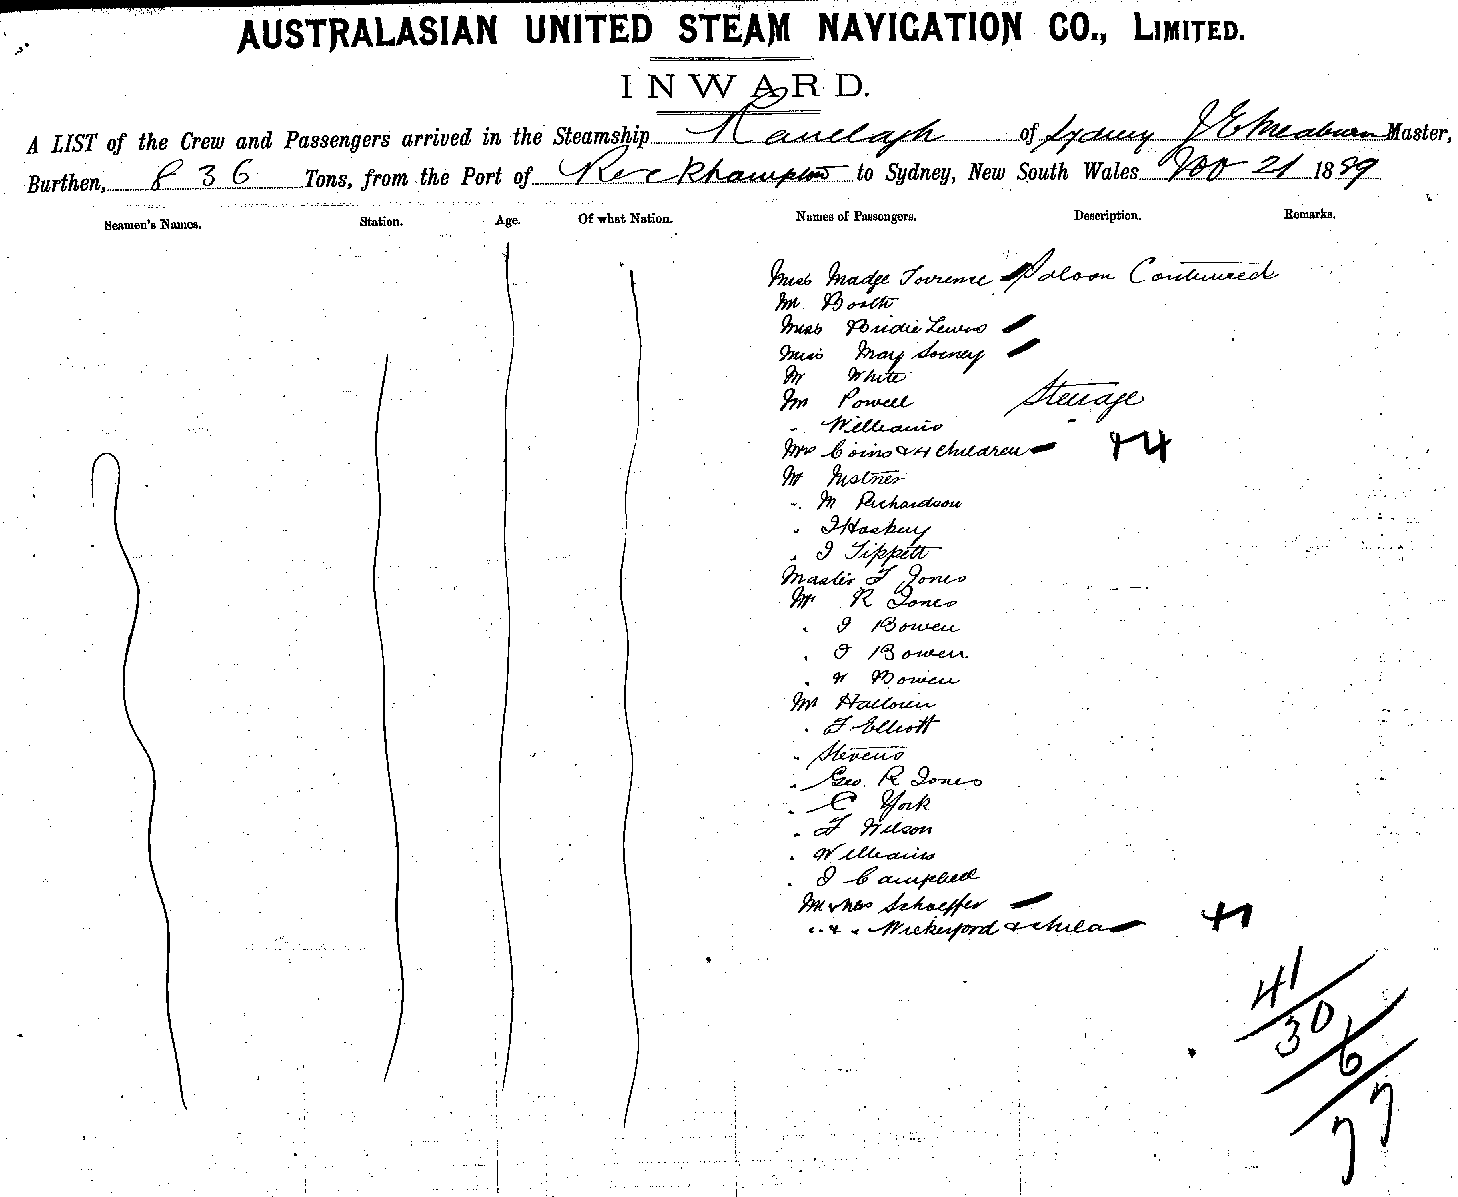 AUSTRALASIAN UNITED STEAM NAVIGATION CO., LIMITED.
INWARD.
A LIST of the Crew and Passengers arrived in the Steamship Ranelagh of Sydney J E Meaburn Master,
Burthen, 836 Tons, from the Port of Rockhampton to Sydney, New South Wales Nov 21 1889
Seamen's Names. Station. Age. Of what Nation. Names of Passengers. Description. Remarks.
Miss Madge Torrence Saloon Continued
Mr Booth
Miss Birdie Lewis
Miss Mary
Mr White
Mr Powell Steerage
" Williams
Mrs Coins & 4 children +4
Mr
" M Richardson
" J Hoskury
" J Tippett
Master F Jones
Mr R Jones
" J Bowen
" J Bowen
" W Bowen
Mr Halloran
" F Elliott
" Stevens
" Geo. R Jones
" C York
" F Wilson
" Williams
" J Campbell
Mr & Mrs Schaeffer
" & " Wickerford & child +1
41
30
6
77